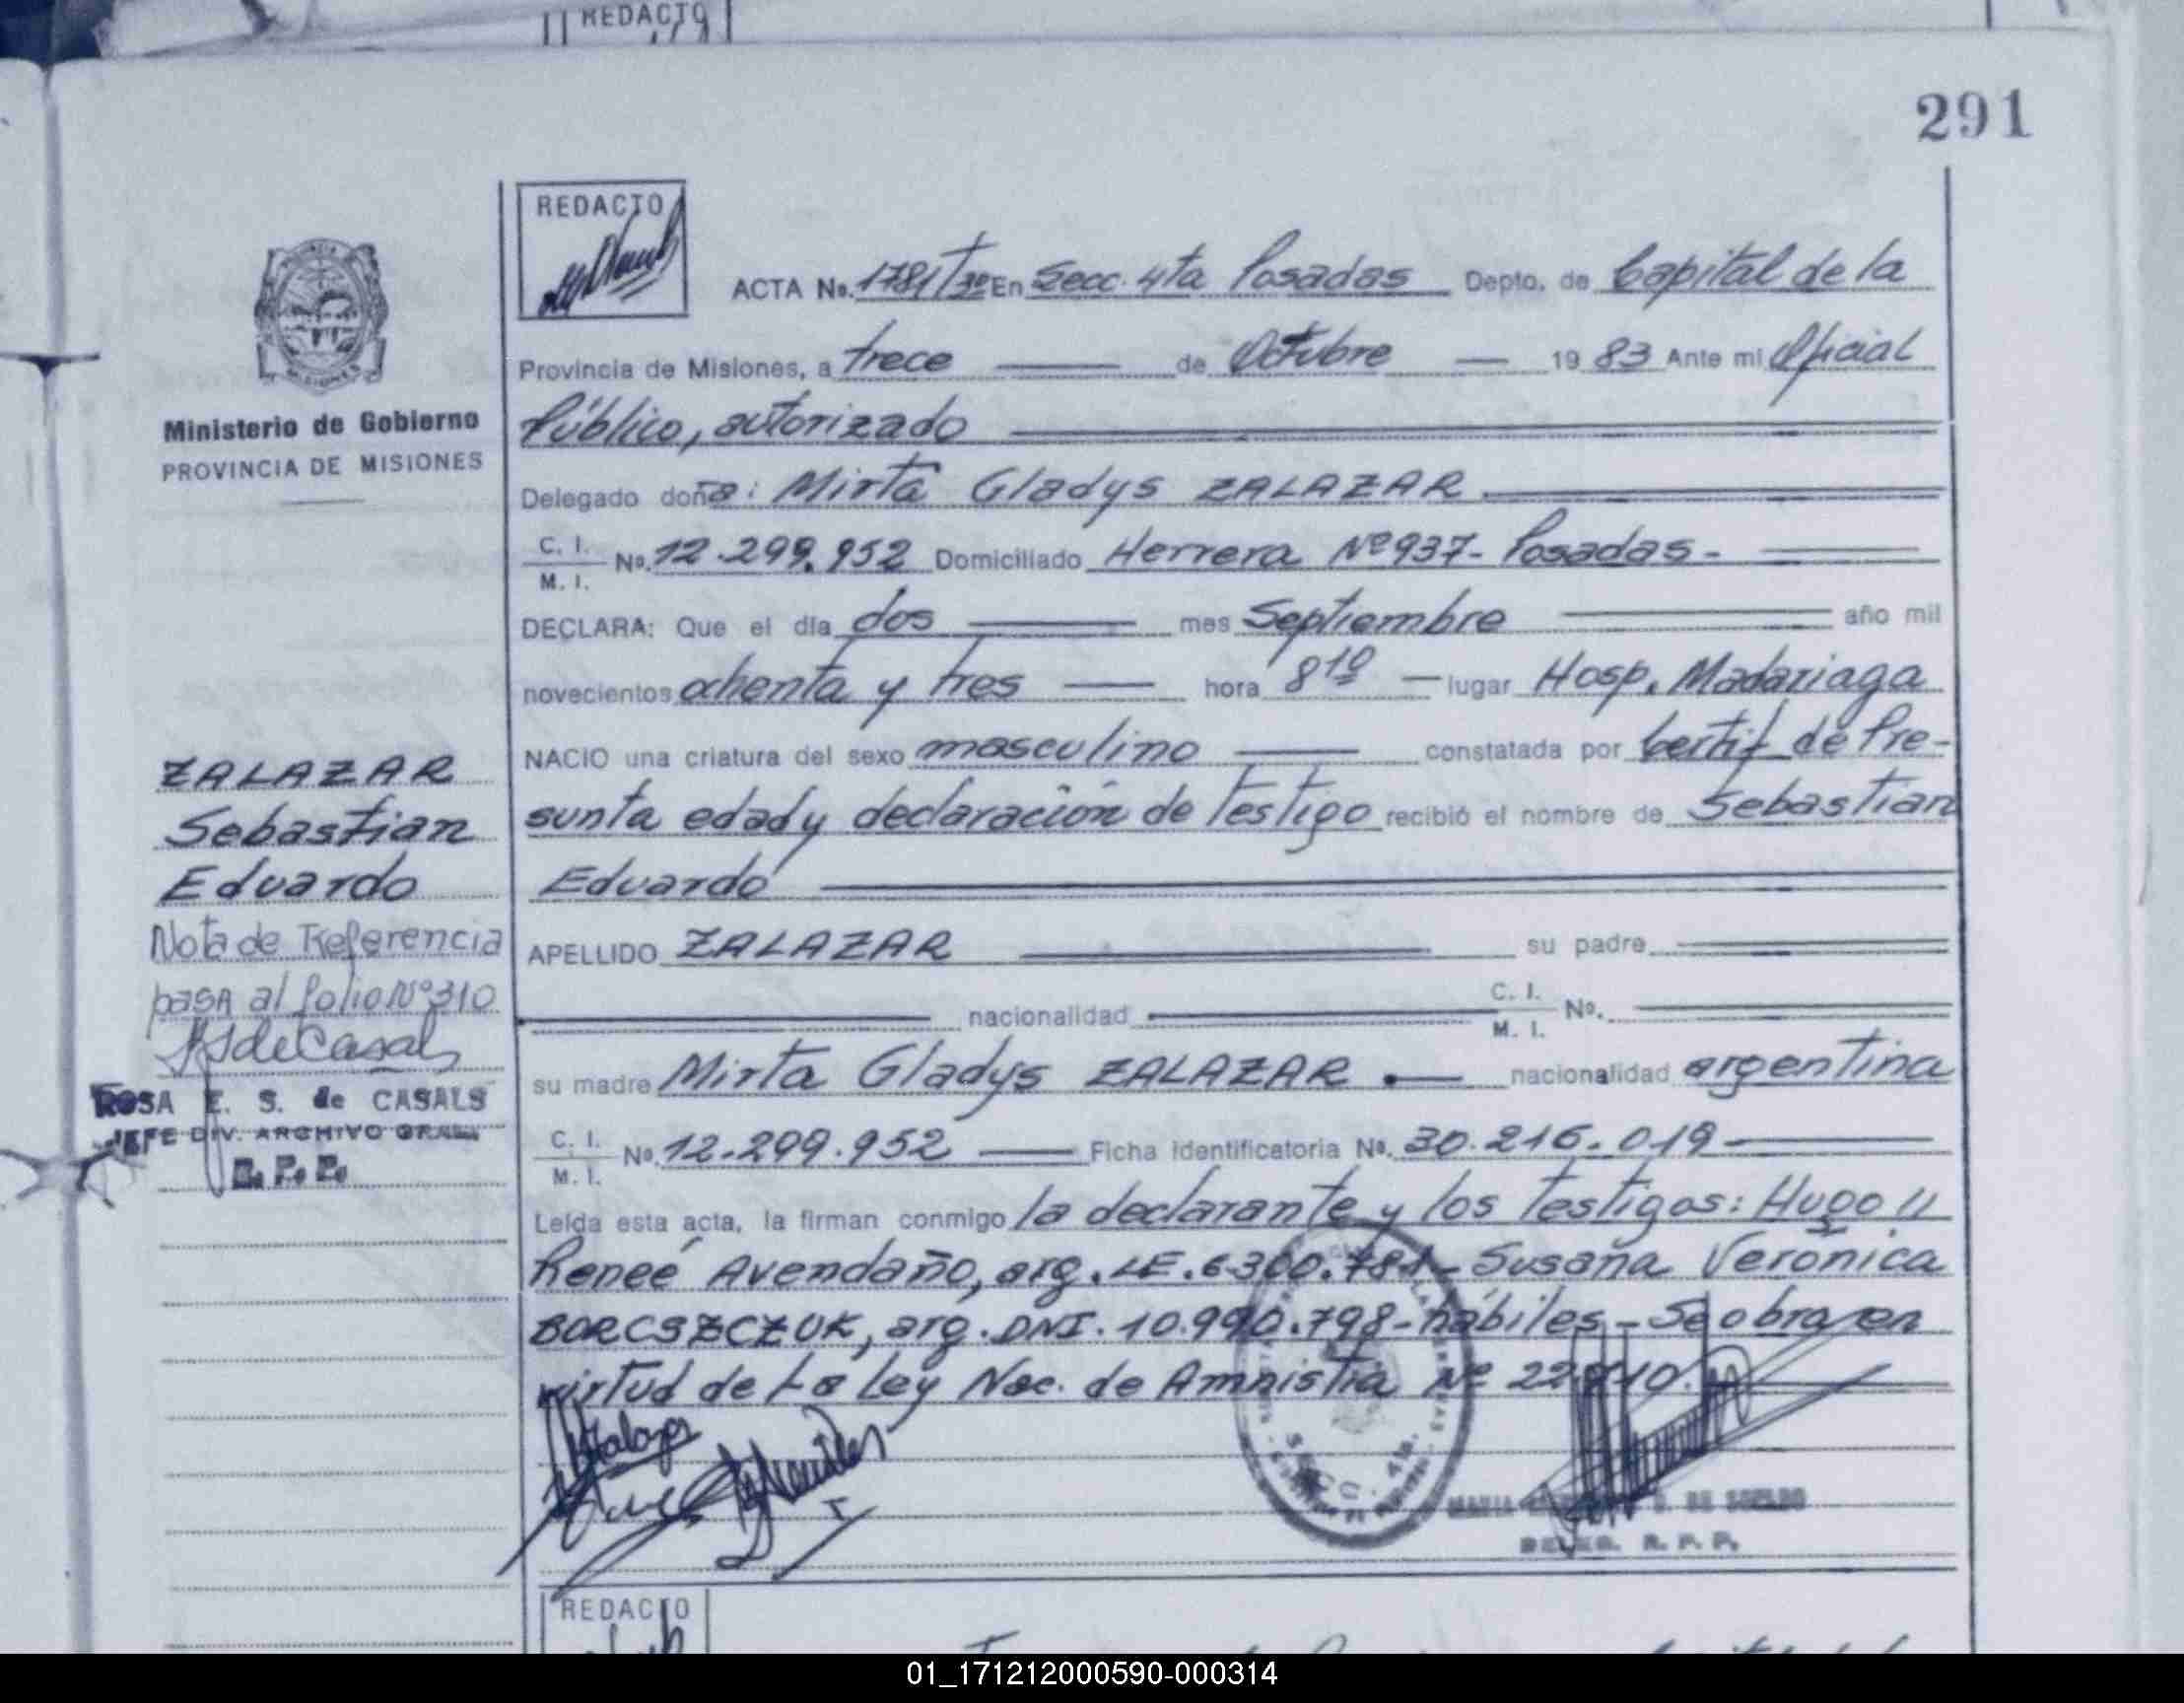 REDACTO
291
REDACTO
ACTA No. 1781/3º En Secc. 4ta Posadas Depto. de Capital de la
Provincia de Misiones, a trece de Octubre 1983 Ante mi Oficial
Público, autorizado
Ministerio de Gobierno
PROVINCIA DE MISIONES
Delegado doña: Mirta Gladys ZALAZAR
C. I.
M. I.
No. 12.299.952 Domiciliado Herrera Nº 937- Posadas-
DECLARA: Que el día dos mes Septiembre año mil
novecientos ochenta y tres hora 8 10 lugar Hosp. Madariaga
NACIO una criatura del sexo masculino constatada por Certif de Pre-
sunta edad y declaración de Testigo recibió el nombre de Sebastian
Eduardo
ZALAZAR
Sebastian
Eduardo
Nota de Referencia
pasa al folio Nº 310
ROSA E. S. de CASALS
JEFE DIV. ARCHIVO GRAL.
R. P. P.
APELLIDO ZALAZAR su padre
nacionalidad C. I.
M. I. No.
su madre Mirta Gladys ZALAZAR nacionalidad argentina
C. I.
M. I.
No. 12.299.952 Ficha identificatoria No. 30.216.019
Leída esta acta, la firman conmigo la declarante y los Testigos: Hugo
Reneé Avendaño, arg. LE. 6300.781- Susana Verónica
BORCSZCZUK, arg. DNI. 10.990.798- hábiles - Se obra en
virtud de La Ley Nac. de Amnistía Nº
DE SUELDO
DELEG. R. P. P.
REDACTO
01_171212000590-000314